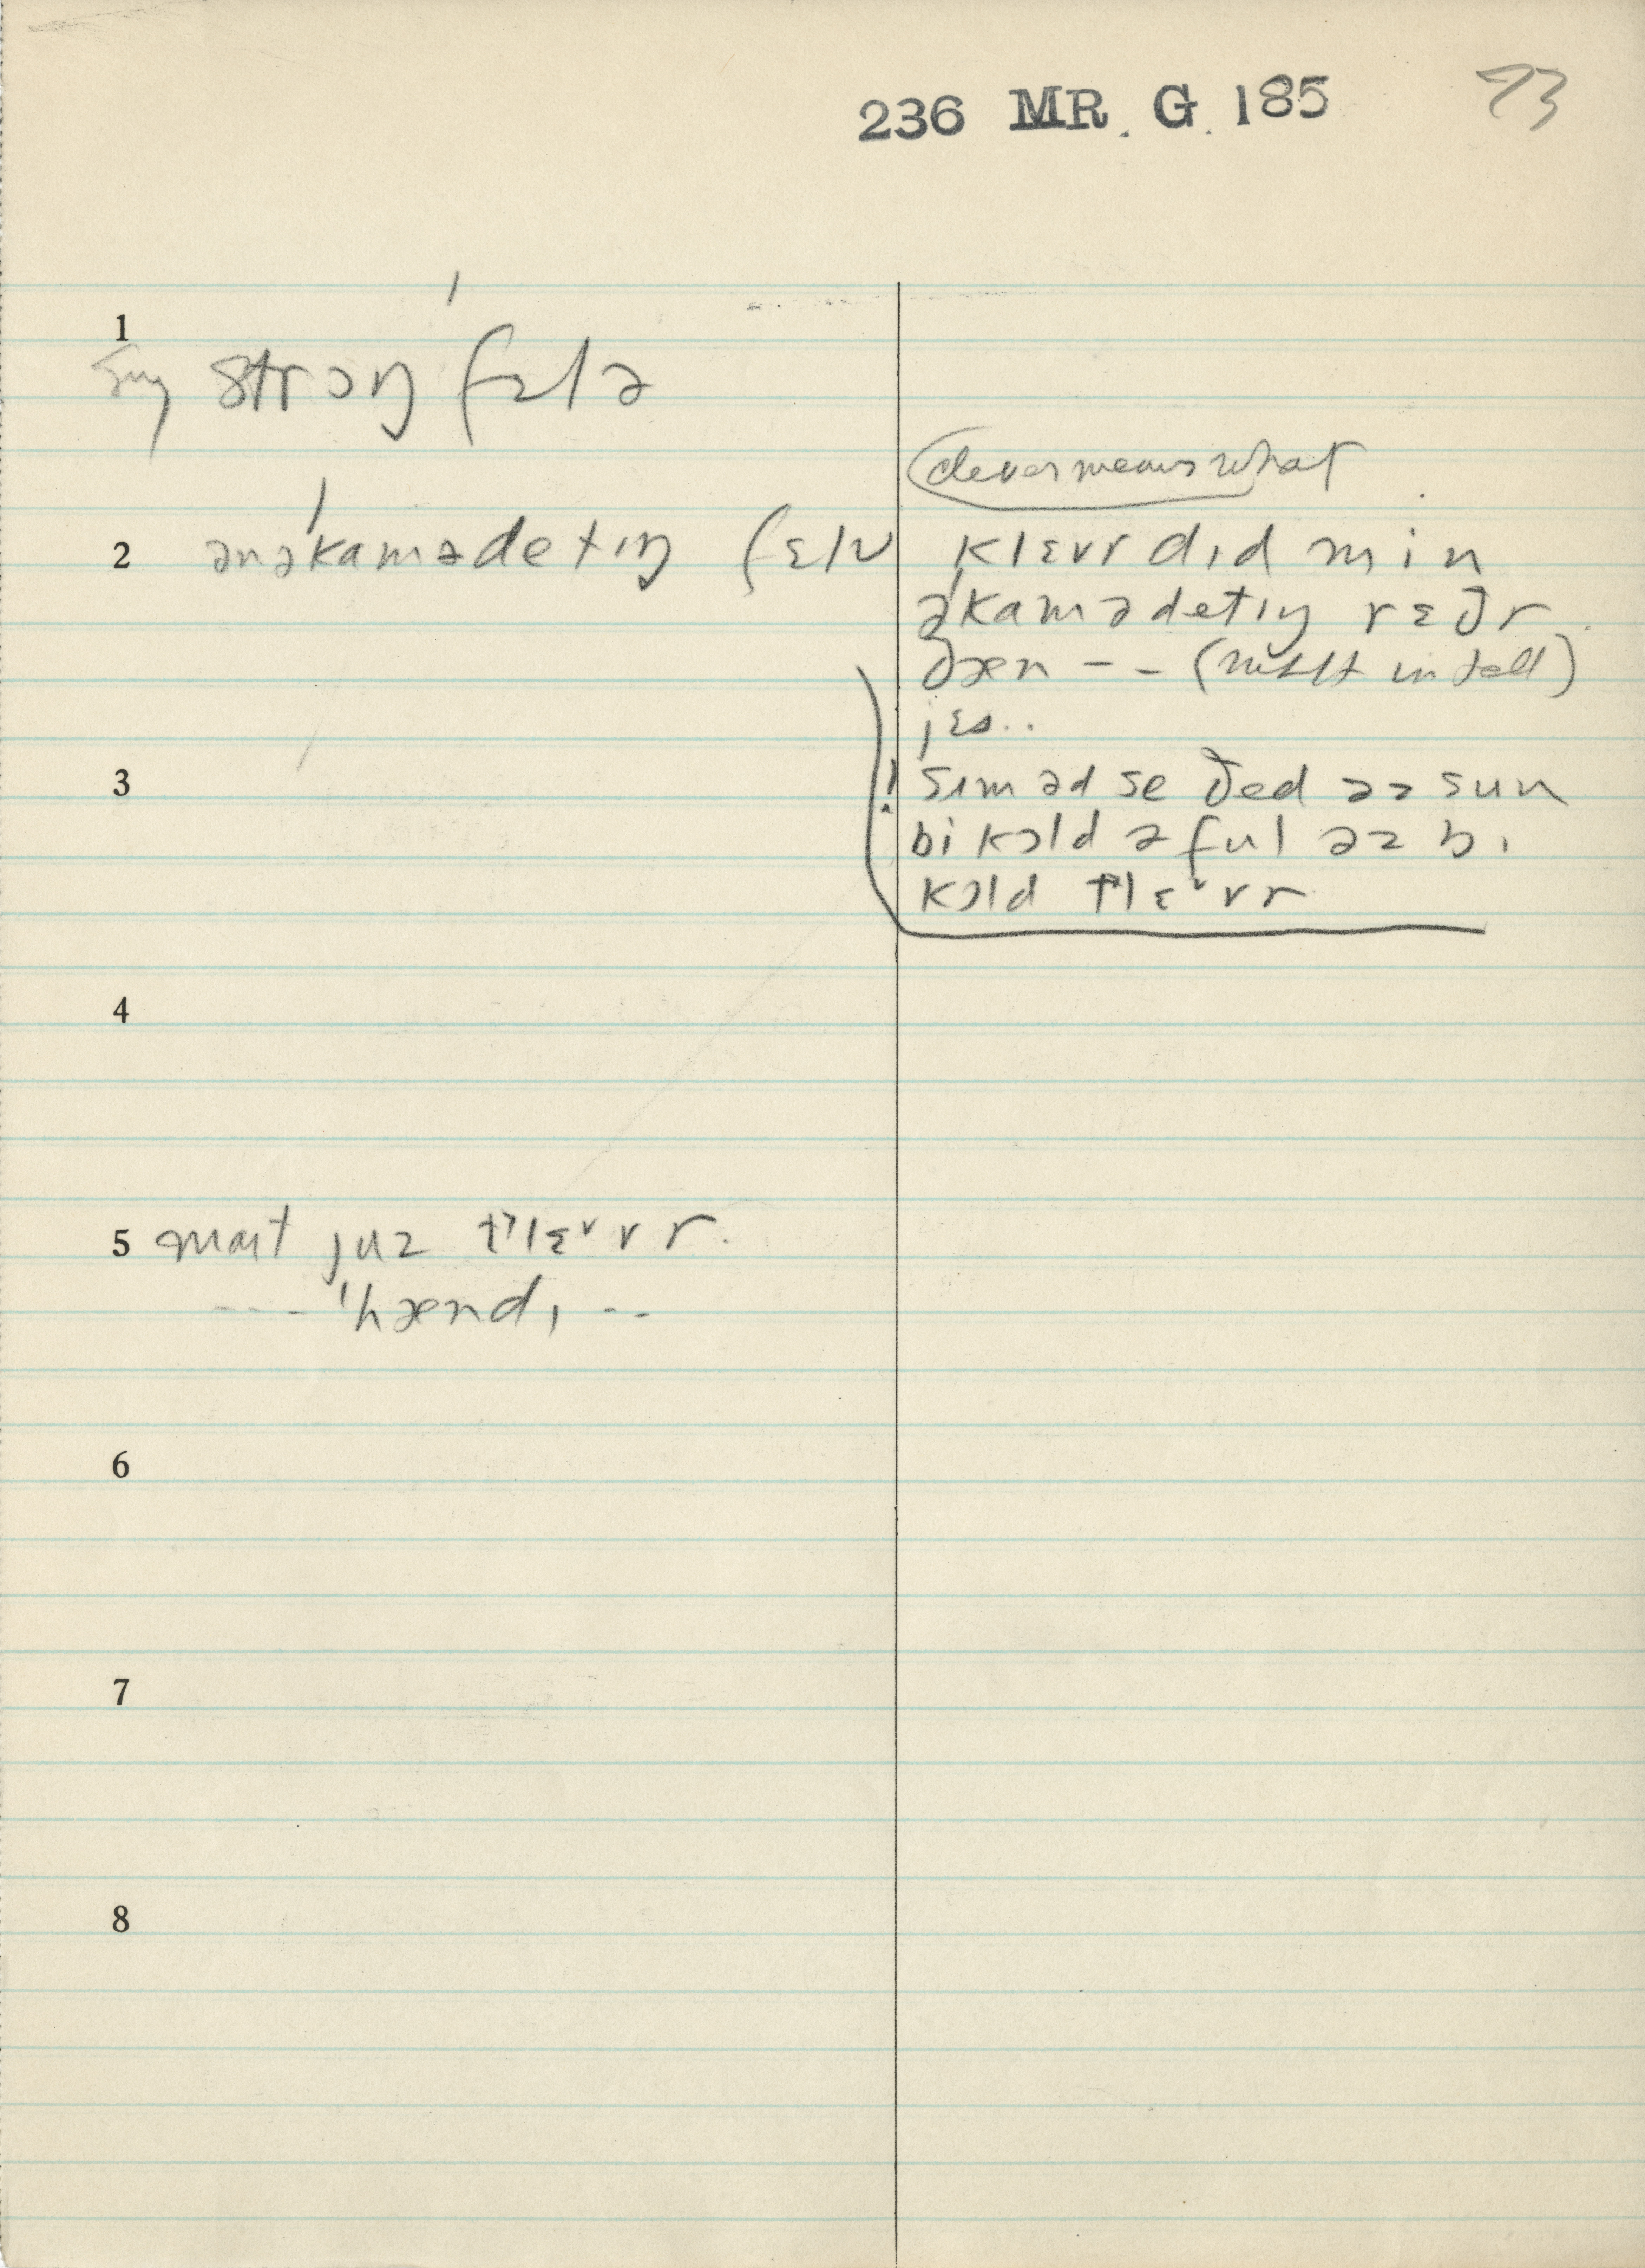 236 MR. G. 185 73
1
strɔŋ fɛlə
clever means what
2 ənəˈkamədetɪŋ fɛlʊ
klɛvr dɪd min
əˈkamədetɪŋ rɛðr
ðæn -- (
jɛs..
3
! sɪm əd se ðed əz sun
bi kɔld ə ful əz bɪ
kɔld t̹lɛᵛvr
4
5 maɪt juz t̹lɛᵛvr.
--- ˈhændɪ --
6
7
8